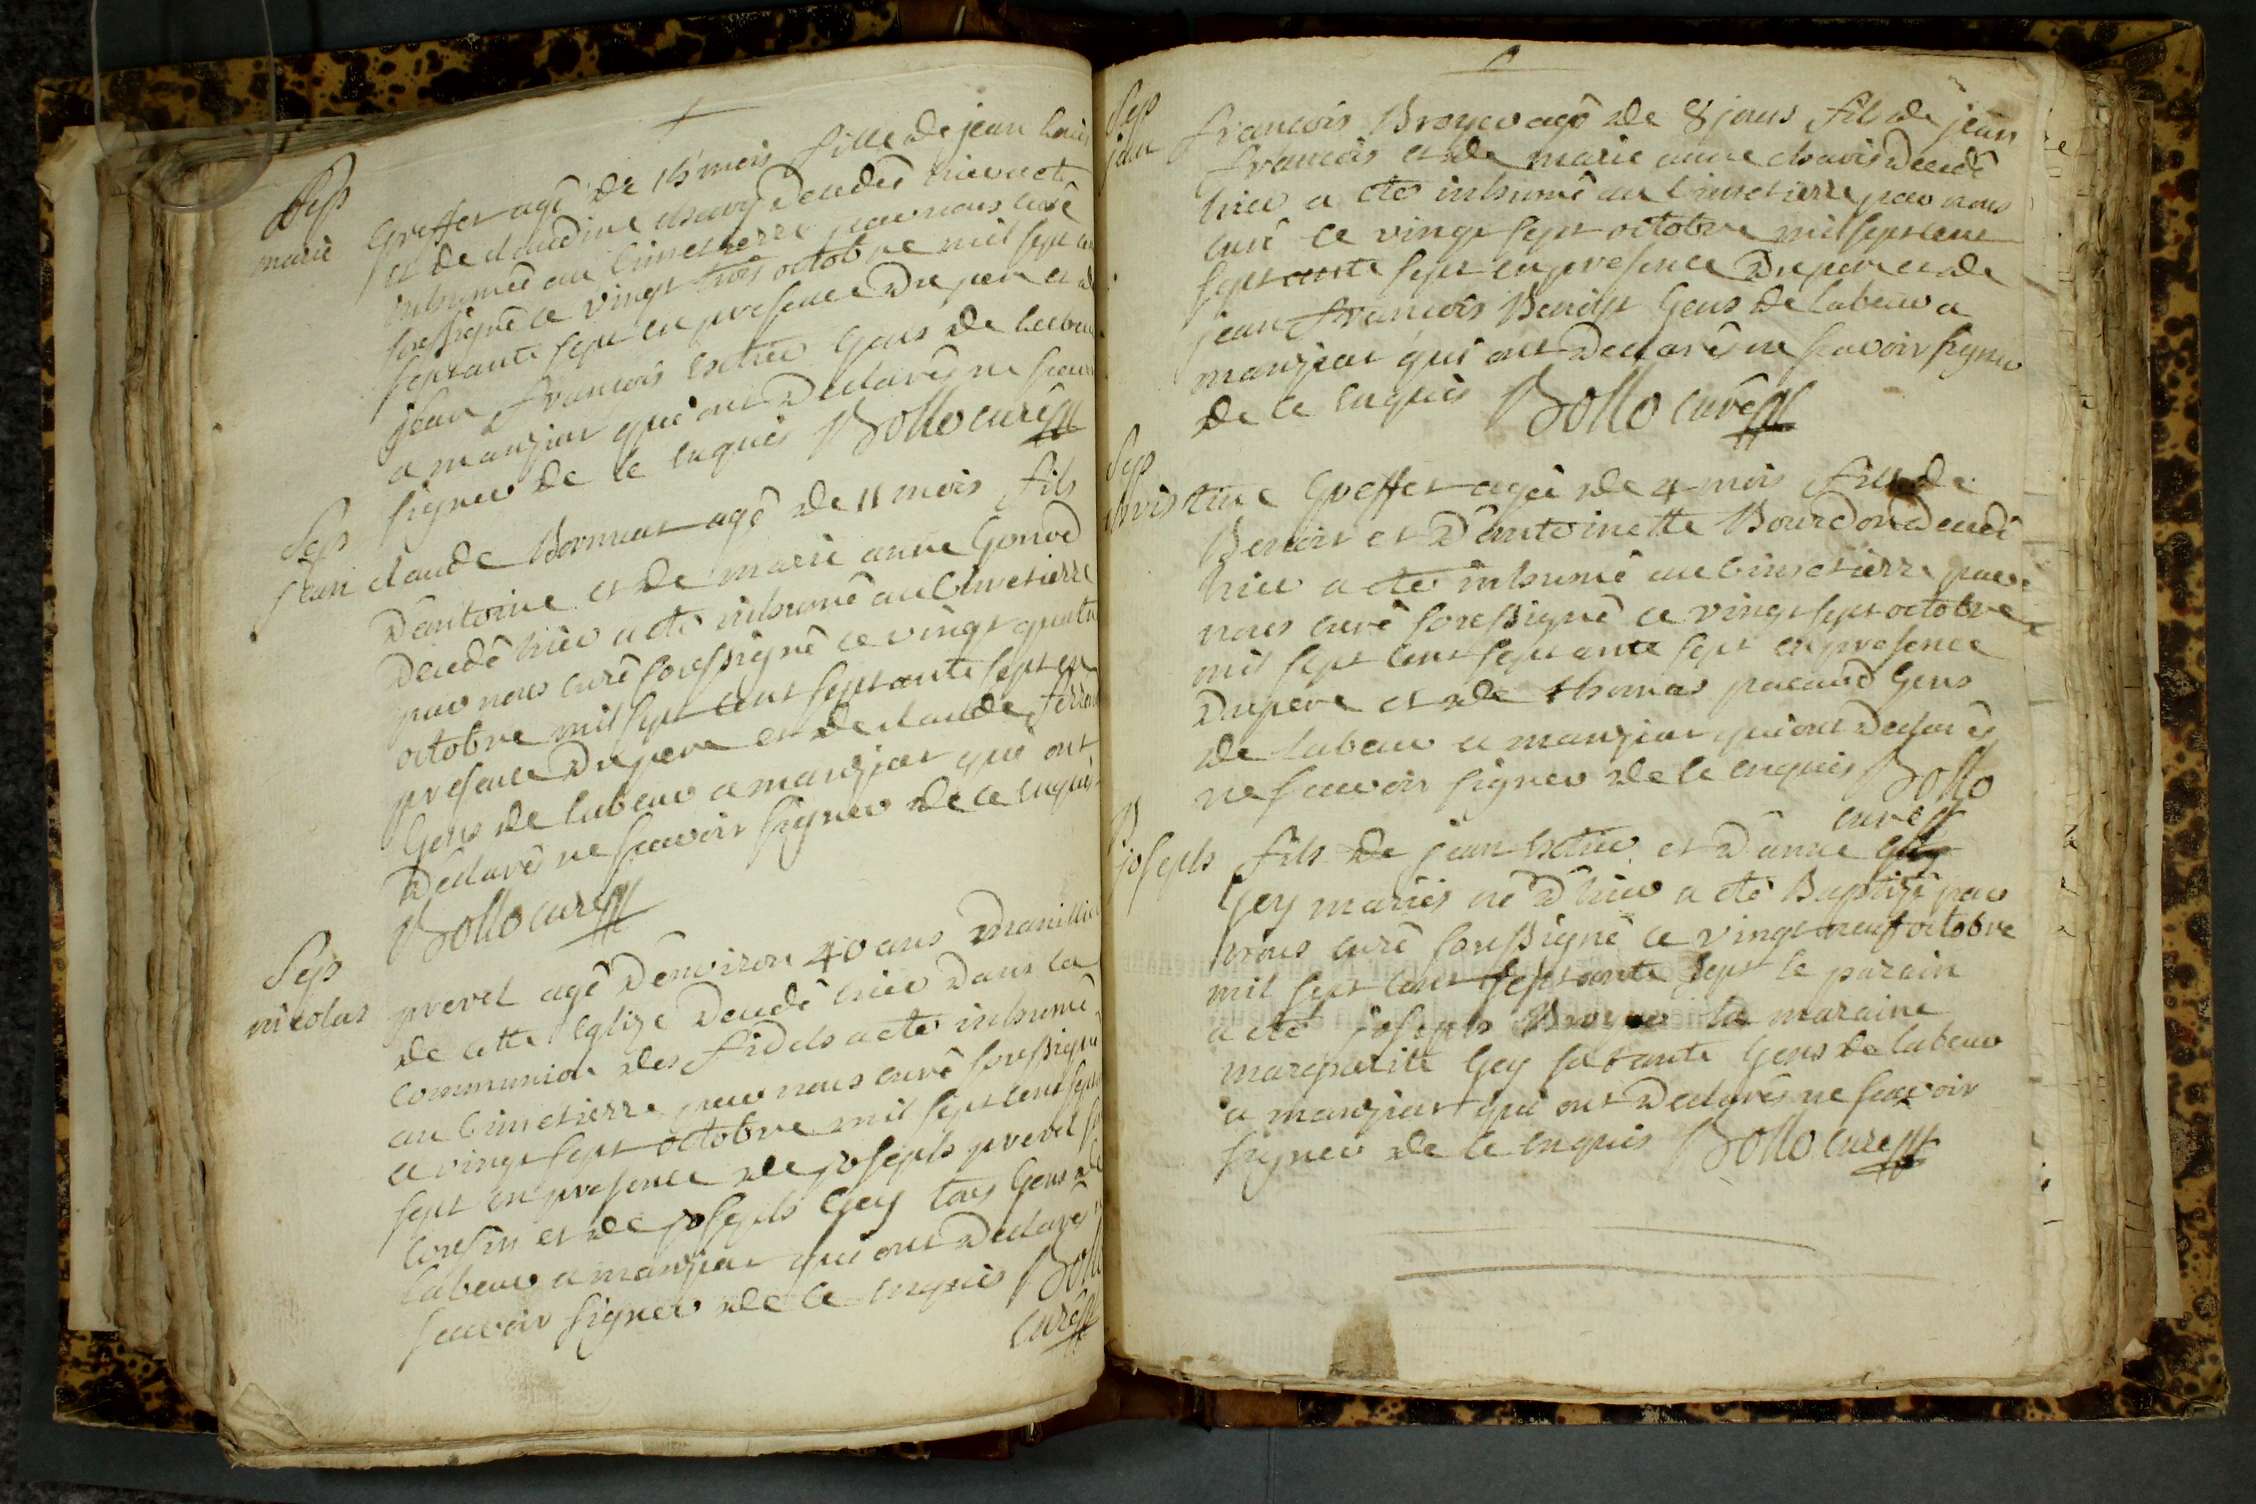 Sep
marie Greffet agé de 15 mois fille de jean
et de claudine chavy decedée hier a eté
inhumée au Cimetierre par nous curé
soussigné ce vingt trois octobre mil sept cent
septante sept en presence du pere et de
jean francois Extier Gens de labeur
a manziat qui ont declarés ne scavoir
signer de ce enquis Bollo curé
Sep
jean claude Bormat agé de 11 mois fils
d'antoine et de marie anne Gonod
decedé hier a eté inhumé au Cimetierre
par nous curé soussigné ce vingt quatre
octobre mil sept cent septante sept en
presence du pere et de claude
Gens de labeur a manziat qui ont
declarés ne scavoir signer de ce enquis
Bollo curé
Sep
nicolas prevel agé d'environ 40 ans
de cette Eglize decedé hier dans la
communion des fidels a eté inhumé
au Cimetierre par nous curé soussigné
ce vingt sept octobre mil sept cent
sept en presence de joseph prevel
cousin et de joseph Gey tous Gens de
labeur a manziat qui ont declarés
scavoir signer de ce enquis Bollo
curé
Sep
jean francois Broyer agé de 8 jours fils de jean
francois et de marie anne chavis decedé
hier a eté inhumé au Cimetierre par nous
curé ce vingt sept octobre mil sept cent
septante sept en presence du pere et de
jean francois Benoist Gens de labeur a
manziat qui ont declarés ne scavoir signer
de ce enquis Bollo curé
Sep
christine Greffet agée de 4 mois fille de
Benoit et d'antoinette Bourdon decedé
hier a eté inhumé au Cimetierre par
nous curé soussigné ce vingt sept octobre
mil sept cent septante sept en presence
du pere et de thomas pacaud Gens
de labeur a manziat qui ont declarés
ne scavoir signer de ce enquis Bollo
curé
B
joseph fils de jean Extier et d'anne
Gey mariés né d'hier a eté Baptizé par
nous curé soussigné ce vingt neuf octobre
mil sept cent septante sept le parain
a eté joseph Broyer la maraine
marguerite Gey sa tante Gens de labeur
a manziat qui ont declarés ne scavoir
signer de ce enquis Bollo curé